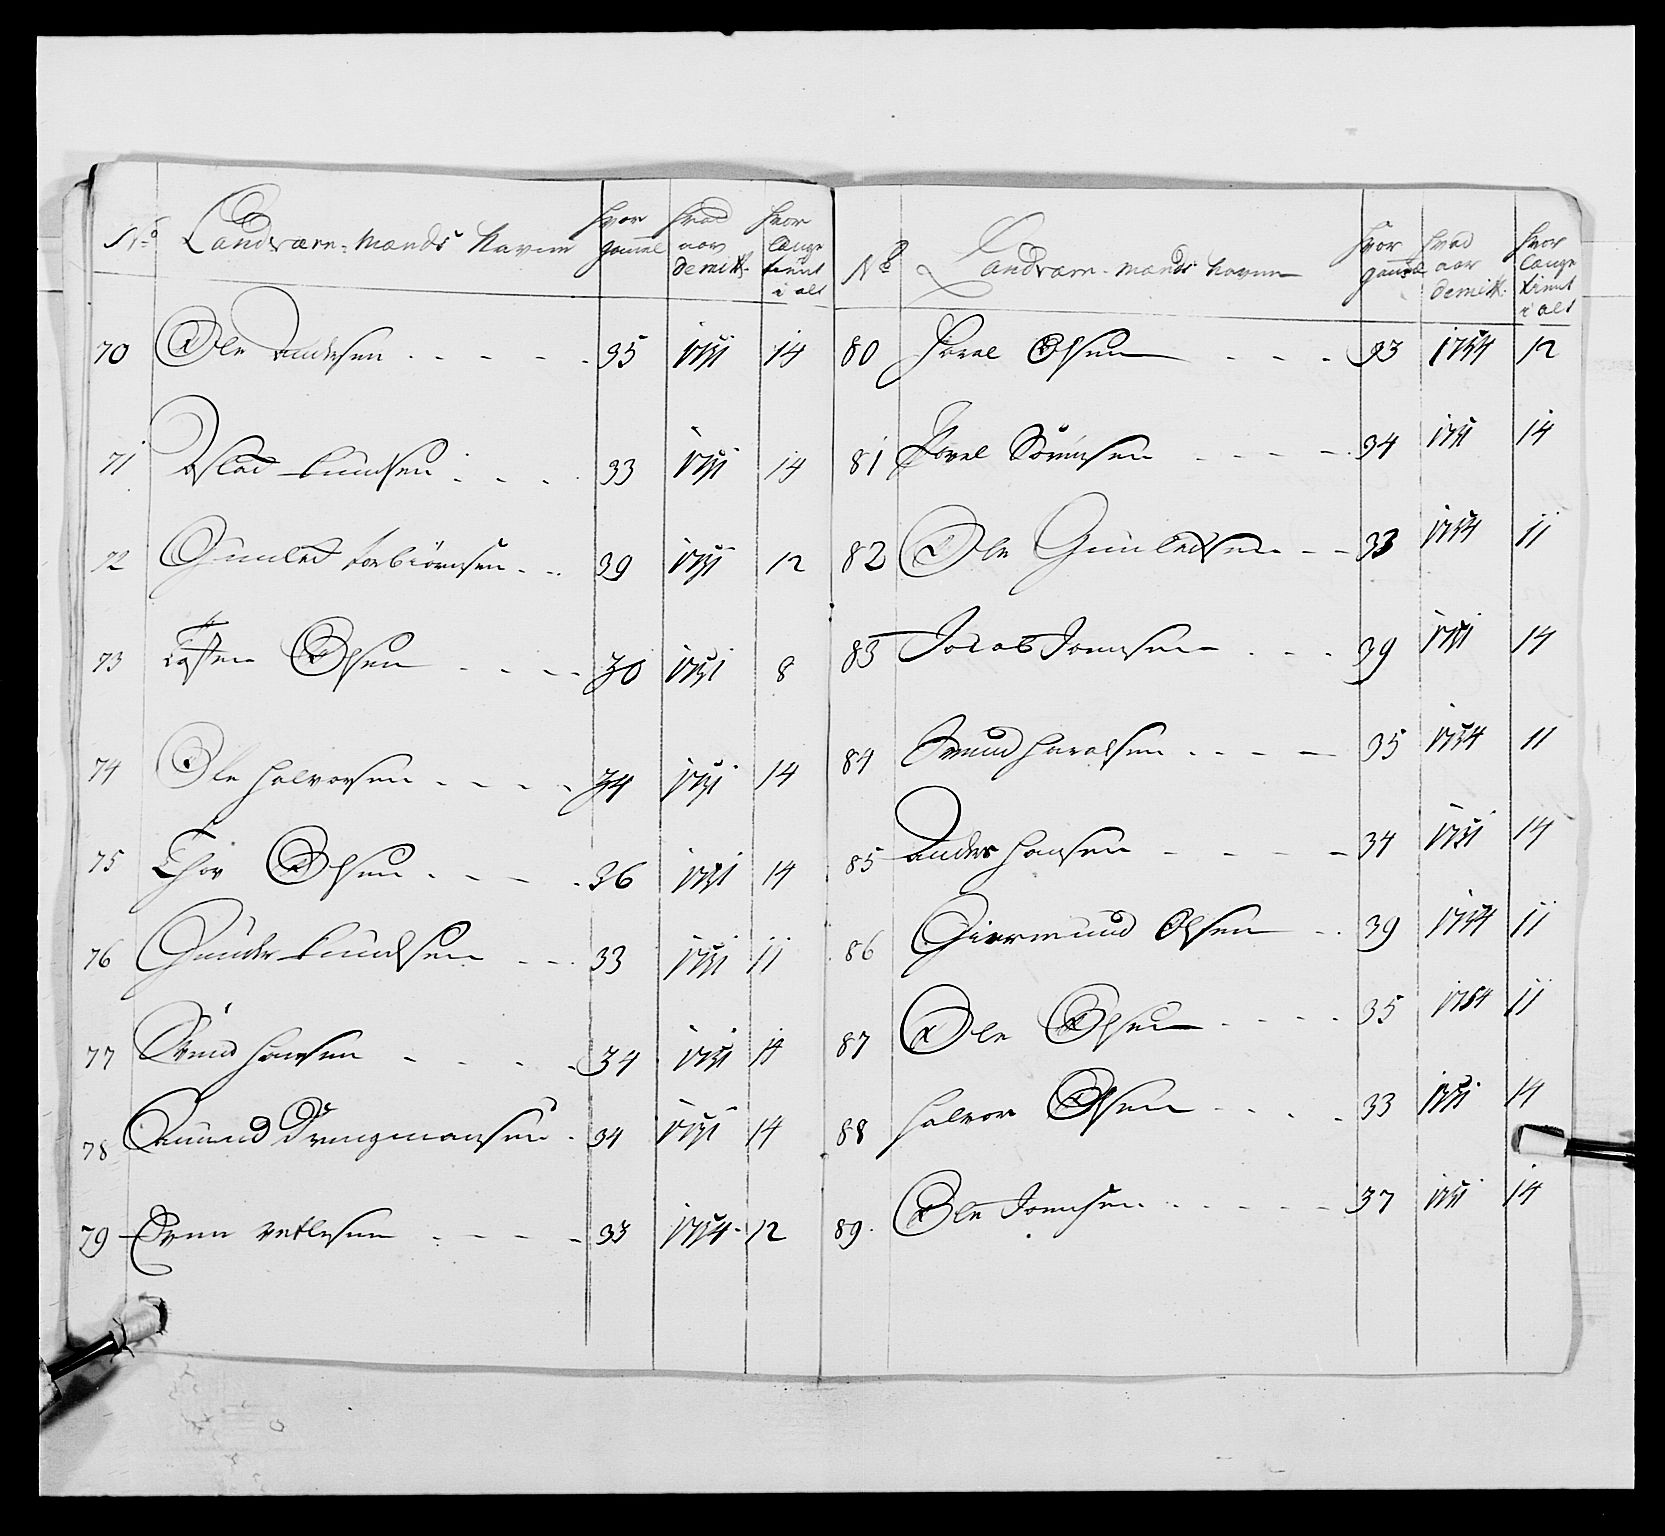 No Landværn-Mænds Navne hvor gammel hvad aar demitt. hvor længe tient i alt
70 Ole Andersen 35 1751 14
71 Aslad Knudsen 33 1751 14
72 Gunled torbiörnsen 39 1751 12
73 Tosten Olsen 30 1751 8
74 Ole Halvorsen 34 1751 14
75 Thor Olsen 36 1751 14
76 Gunder Knudsen 33 1751 11
77 Svend Hansen 34 1751 14
78 Amund Drengmansen 34 1751 14
79 Even Vetlesen 33 1754 12
No Landværn-mænds Navne hvor gammel hvad aar demitt. hvor længe tient i alt
80 Olsen 33 1754 12
81 Povel Sörensen 34 1751 14
82 Ole Gunledsen 33 1754 11
83 Jocob Joensen 39 1751 14
84 Svend 35 1754 11
85 Anders Hansen 34 1751 14
86 Giermund Olsen 39 1754 11
87 Ole Olsen 35 1754 11
88 Halvor Olsen 33 1751 14
89. Ole Joensen 37 1751 14